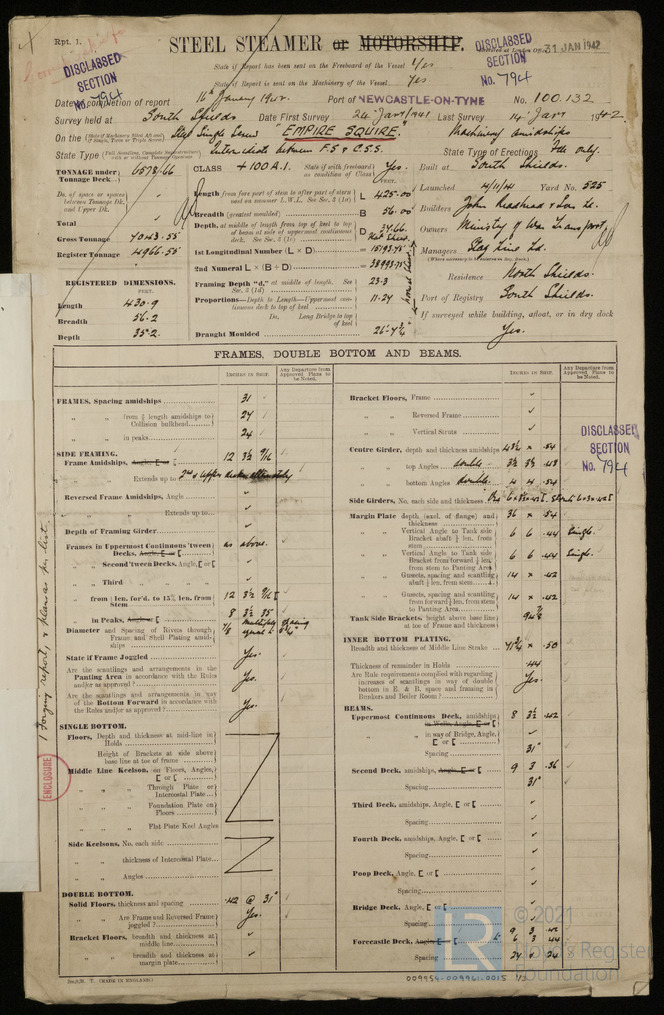 Rpt. 1.
STEEL STEAMER or MOTORSHIP.
DISCLASSED SECTION No. 794
DISCLASSED SECTION No. 794
31 JAN 1942
State if Report has been sent on the Freeboard of the Vessel Yes
State if Report is sent on the Machinery of the Vessel Yes
Date of completion of report 16th January 1942. Port of NEWCASTLE-ON-TYNE No. 100.132
Survey held at South Shields Date First Survey 24 Jan 1941 Last Survey 14 Jany 1942
On the Steel Single Screw "EMPIRE SQUIRE" Machinery Amidships
State Type Intermediate between F.S & C.S.S. State Type of Erections Fcle only.
TONNAGE under Tonnage Deck 6578.66
Do. of space or spaces between Tonnage Dk. and Upper Dk.
Total
Gross Tonnage 7043.55
Register Tonnage 4966.55
REGISTERED DIMENSIONS.
FEET.
Length 430.9
Breadth 56.2
Depth 35.2
CLASS +100A.1. State if with freeboard as condition of Class Yes.
Length from fore part of stem to after part of stern post on summer L.W.L. See Sec. 3 (1a) L 425.00
Breadth (greatest moulded) B 56.00
Depth, at middle of length from top of keel to top of beam at side of uppermost continuous deck. See Sec. 3 (1c) D 37.66
1st Longitudinal Number (L × D) = 15793.75
2nd Numeral L × (B + D) = 38993.75
Framing Depth "d," at middle of length. See Sec. 3 (1d) 23.3
Proportions—Depth to Length—Uppermost continuous deck to top of keel 11.24
Do. Long Bridge to top of keel
Draught Moulded 26'-7¾"
Built at South Shields.
Launched 4/11/41 Yard No. 525
Builders John Readhead & Sons Ld.
Owners Ministry of War Transport
Managers Stag Line Ld.
Residence North Shields.
Port of Registry South Shields.
If surveyed while building, afloat, or in dry dock
Yes.
FRAMES, DOUBLE BOTTOM AND BEAMS.
INCHES IN SHIP.
Any Departure from Approved Plans to be Noted.
FRAMES, Spacing amidships 31
" " from ⅗ length amidships to Collision bulkhead 27
" " in peaks 24
SIDE FRAMING.
Frame Amidships, Angle, E or [ 12 3½ 7/16
" " Extends up to 2nd & upper decks alternately
Reversed Frame Amidships, Angle
" " Extends up to
Depth of Framing Girder
Frames in Uppermost Continuous 'tween Decks, Angle, E or [ as above.
" Second 'tween Decks, Angle, [ or [
" Third " " "
" from ⅗ len. for'd. to 15% len. from Stem 12 3½ 7/16 [
" in Peaks, Angle or [ 8 3½ 35
Diameter and Spacing of Rivets through Frame and Shell Plating amidships 7/8
State if Frame Joggled Yes.
Are the scantlings and arrangements in the Panting Area in accordance with the Rules and/or as approved? Yes.
Are the scantlings and arrangements in way of the Bottom Forward in accordance with the Rules and/or as approved? Yes.
SINGLE BOTTOM.
Floors, Depth and thickness at mid-line in Holds
Height of Brackets at side above base at toe of frame
Middle Line Keelson, on Floors, Angles, [ or [
" " Through Plate or Intercostal Plate
" " Foundation Plate on Floors
" " Flat Plate Keel Angles
Side Keelsons, No. each side
" " thickness of Intercostal Plate
" " Angles
DOUBLE BOTTOM.
Solid Floors, thickness and spacing .42 @ 31"
" " Are Frame and Reversed Frame joggled? Yes.
Bracket Floors, breadth and thickness at middle line
" " breadth and thickness at margin plate
Bracket Floors, Frame
" " Reversed Frame
" " Vertical Struts
Centre Girder, depth and thickness amidships 43½ × .54
" " top Angles double 3½ 3½ .43
" " bottom Angles double 4 4 .54
Side Girders, No. each side and thickness
Margin Plate depth (excl. of flange) and thickness 36 × .54
" " Vertical Angle to Tank side Bracket abaft ¼ len. from stem 6 6 .44 Single
" " Vertical Angle to Tank side Bracket from forward ¼ len. from stem to Panting Area 6 6 .44 Single
" " Gussets, spacing and scantling abaft ¼ len. from stem 14 × .42
" " Gussets, spacing and scantling from forward ¼ len. from stem to Panting Area 14 × .42
Tank Side Brackets, height above base line at toe of Frame and thickness
INNER BOTTOM PLATING.
Breadth and thickness of Middle Line Strake 71¾ × .50
Thickness of remainder in Holds .44
Are Rule requirements complied with regarding increases of scantlings in way of double bottom in E. & B. space and framing in Bunkers and Boiler Room? Yes.
BEAMS.
Uppermost Continuous Deck, amidships in Wells, Angle, [ or [ 8 3½ .42
" " in way of Bridge, Angle, [ or [
Spacing 31"
Second Deck, amidships, Angle, [ or [ 9 3 .36
Spacing 31"
Third Deck, amidships, Angle, [ or [
Spacing
Fourth Deck, amidships, Angle, [ or [
Spacing
Poop Deck, Angle, [ or [
Spacing
Bridge Deck, Angle, [ or [
Spacing
Forecastle Deck, Angle, [ or [ 9 3 .42
6 3 .44
Spacing 27 & 24
DISCLASSED SECTION No. 794
1 Forging report, & plans as per list.
ENCLOSURE
© 2021
Lloyd's Register
Foundation
009954-009961-0015